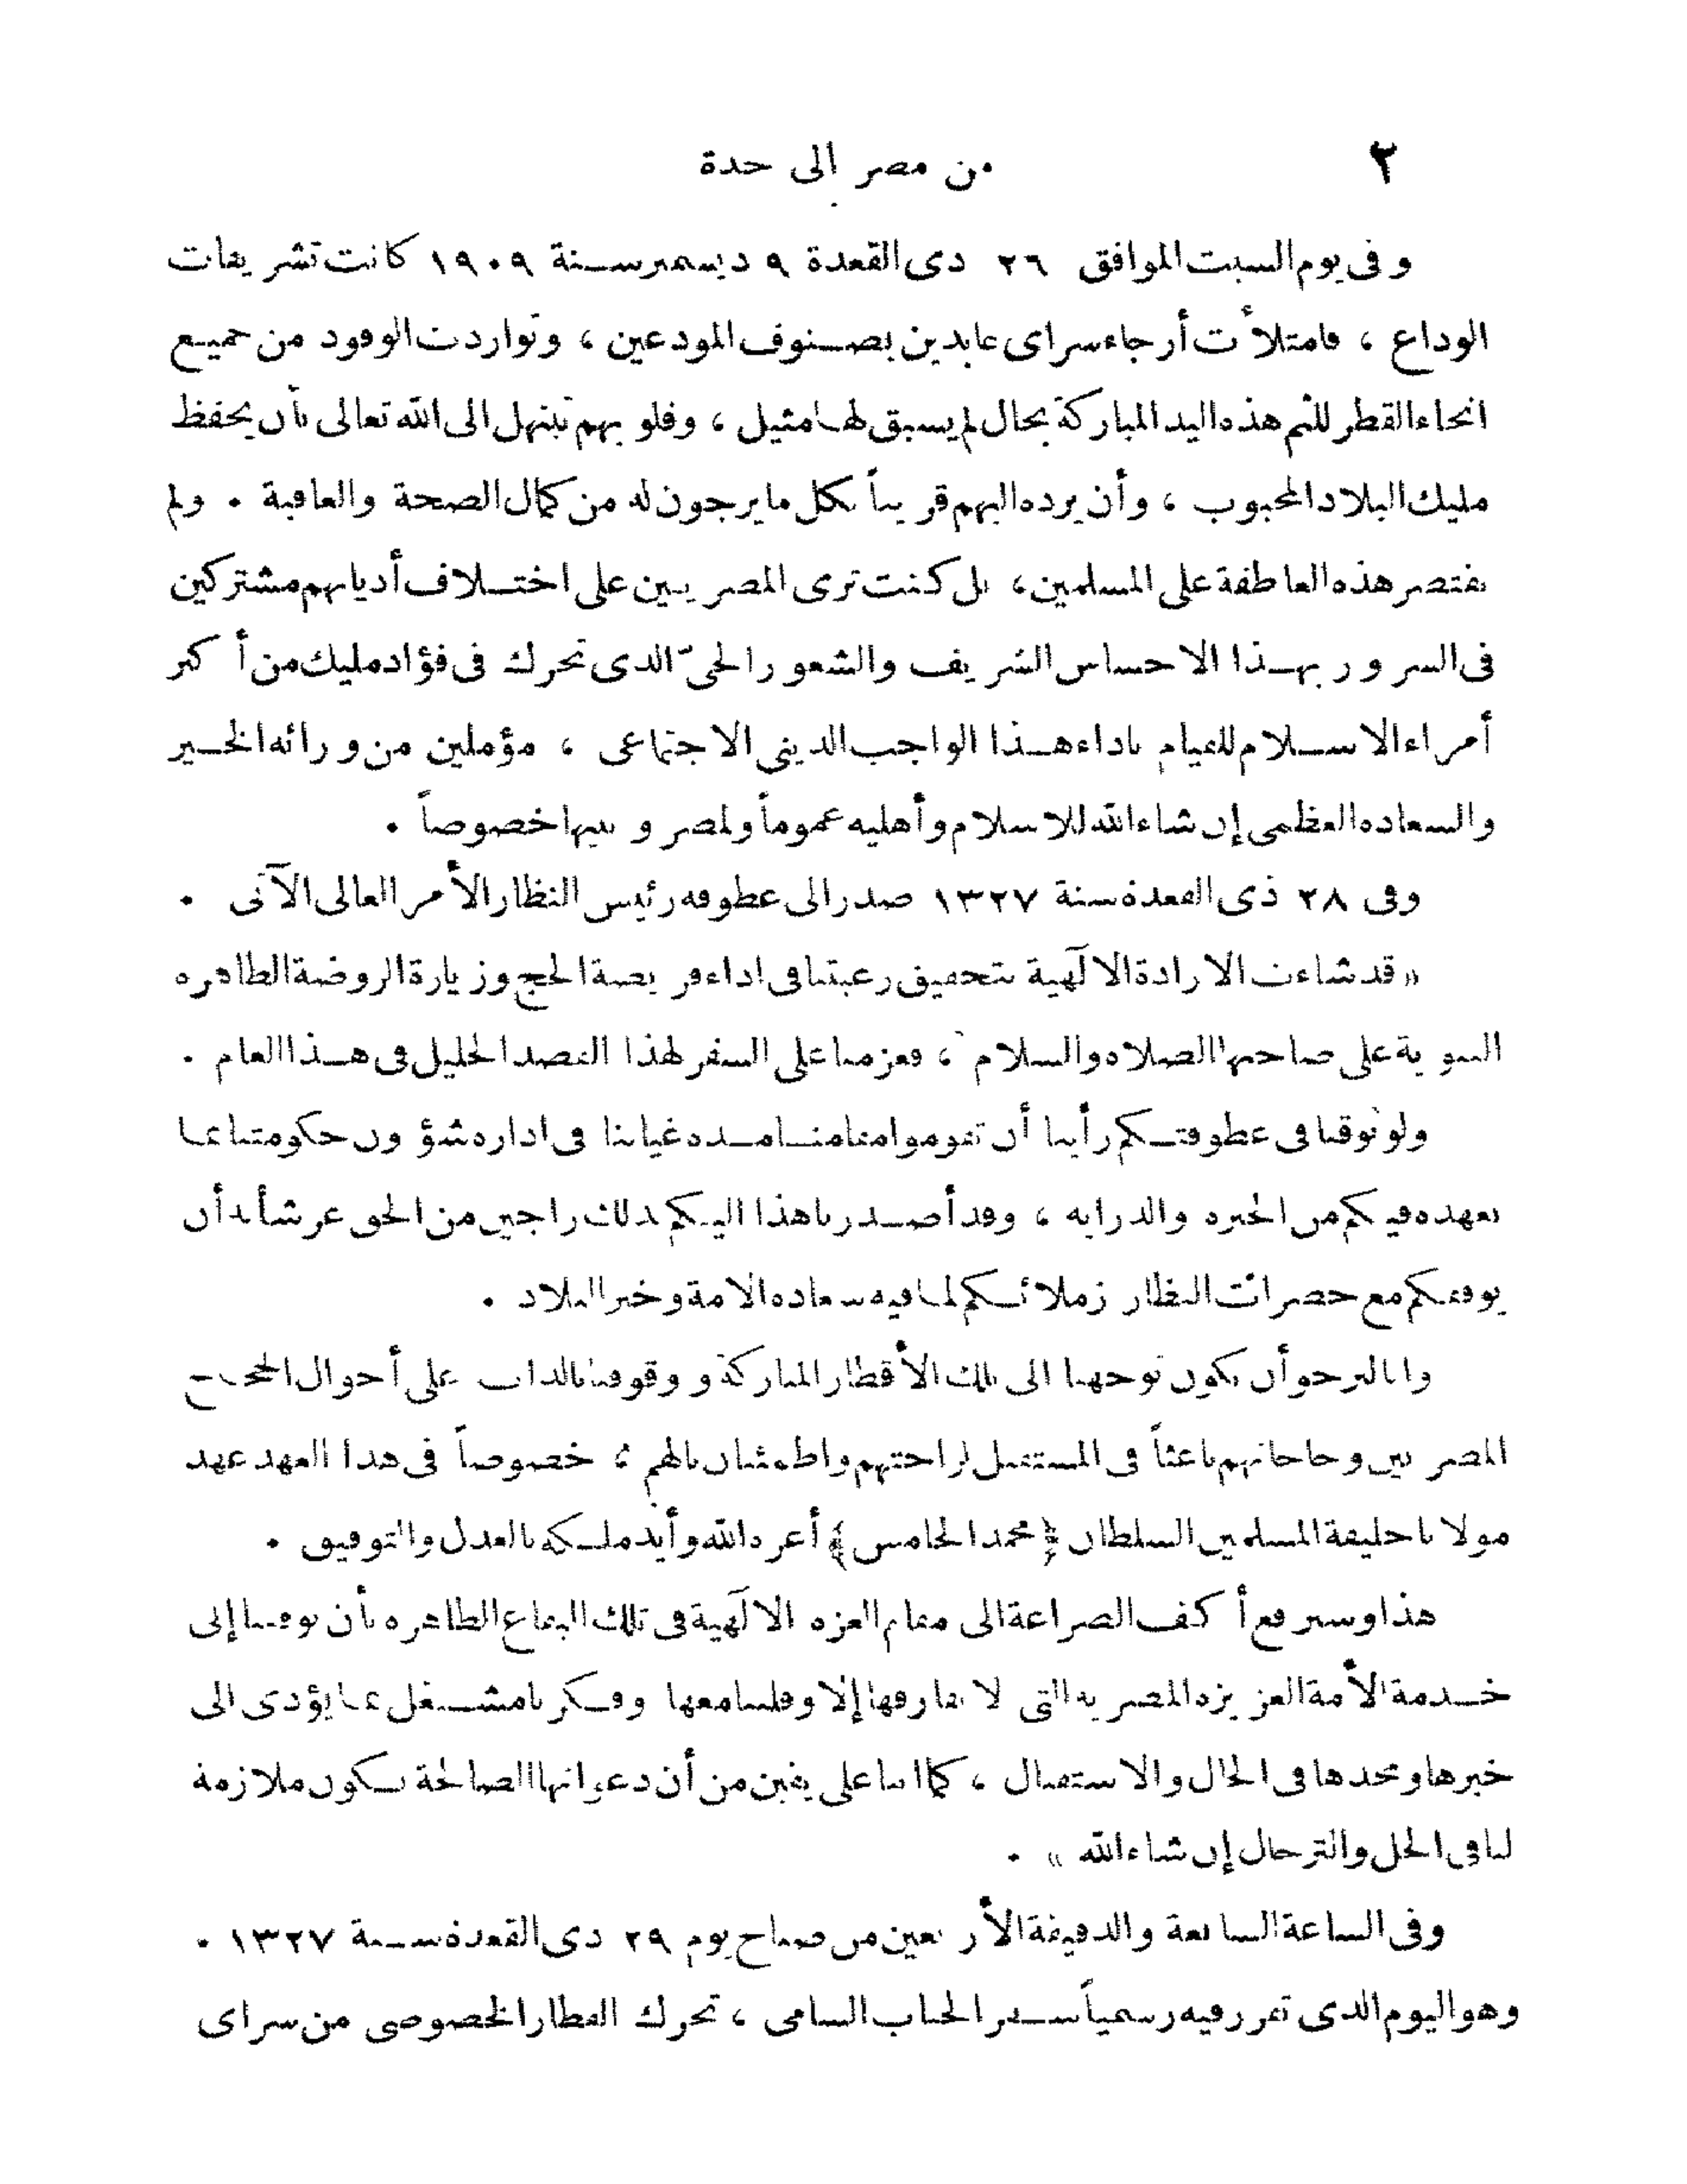 ٢ من مصر الى جدة
وفى يوم السبت الموافق ٢٦ ذى القعدة ٩ ديسمبر سنة ١٩٠٩ كانت تشريفات
الوداع ، فامتلأت أرجاء سراى عابدين بصنوف المودعين ، وتواردت الوفود من جميع
انحاء القطر للثم هذه اليد المباركة بحال لم يسبق لها مثيل ، وقلوبهم تبتهل الى الله تعالى بأن يحفظ
مليك البلاد المحبوب ، وأن يرده اليهم قريباً بكل ما يرجون له من كمال الصحة والعافية . ولم
تقتصر هذه العاطفة على المسلمين ، بل كنت ترى المصريين على اختلاف أديانهم مشتركين
فى السرور بهذا الاحساس الشريف والشعور الحىّ الذى تحرك فى فؤاد مليك من أكبر
أمراء الاسلام للقيام باداء هذا الواجب الدينى الاجتماعى ، مؤملين من ورائه الخير
والسعادة العظمى إن شاء الله للاسلام وأهليه عموماً ولمصر وبنيها خصوصاً .
وفى ٢٨ ذى القعدة سنة ١٣٢٧ صدر الى عطوفة رئيس النظار الأمر العالى الآتى .
« قد شاءت الارادة الالٓهية بتحقيق رغبتنا فى اداء فريضة الحج وزيارة الروضة الطاهرة
النبوية على صاحبها الصلاة والسلام ، فعزمنا على السفر لهذا القصد الجليل فى هذا العام .
ولوثوقنا فى عطوفتكم رأينا أن تقوموا مقامنا مدة غيابنا فى ادارة شؤون حكومتنا بما
نعهده فيكم من الخبرة والدراية ، وقد أصدرنا هذا اليكم بذلك راجين من الحق عز شأنه أن
يوفقكم مع حضرات النظار زملائكم لما فيه سعادة الامة وخير البلاد .
وانا لنرجو أن يكون توجهنا الى تلك الأقطار المباركة ووقوفنا بالذات على أحوال الحجاج
المصريين وحاجاتهم باعثاً فى المستقبل لراحتهم واطمئنان بالهم ، خصوصاً فى هذا العهد عهد
مولانا خليفة المسلمين السلطان ﴿ محمد الخامس ﴾ أعزه الله وأيد ملكه بالعدل والتوفيق .
هذا وسنرفع أكف الضراعة الى مقام العزة الالٓهية فى تلك البقاع الطاهرة بأن يوفقنا إلى
خدمة الأمة العزيزة المصرية التى لا نفارقها إلا وقلبنا معها وفكرنا مشتغل بما يؤدى الى
خيرها ومجدها فى الحال والاستقبال ، كما اننا على يقين من أن دعواتها الصالحة ستكون ملازمة
لنا فى الحل والترحال إن شاء الله » .
وفى الساعة السابعة والدقيقة الأربعين من صباح يوم ٢٩ ذى القعدة سنة ١٣٢٧ .
وهو اليوم الذى تقرر فيه رسمياً سفر الجناب السامى ، تحرك القطار الخصوصى من سراى